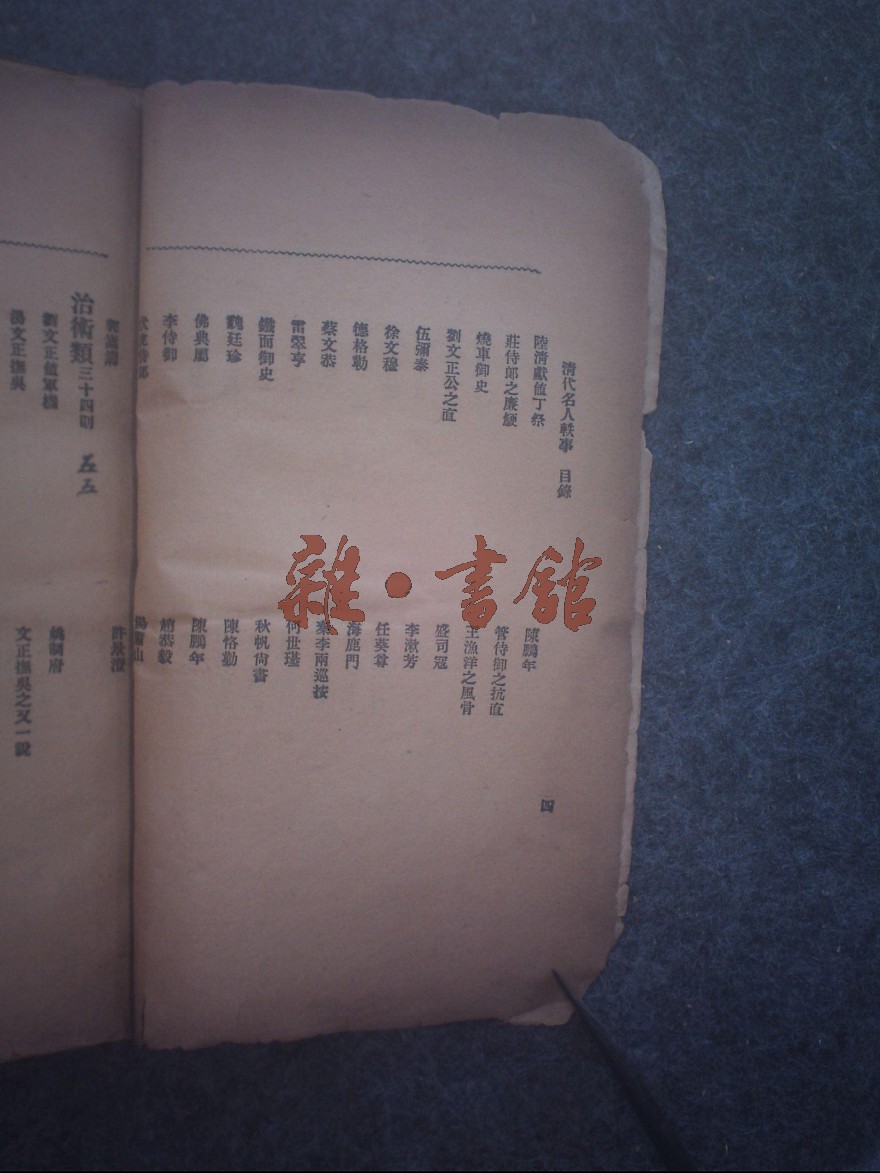 清代名人軼事　目錄
四
陸清獻値丁祭
陳鵬年
莊侍郎之廉鯁
管侍御之抗直
燒車御史
王漁洋之風骨
劉文正公之直
盛司冠
伍彌泰
李漱芳
徐文穆
任葵尊
德格勒
海鹿門
蔡文恭
秦李兩巡按
雷翠亭
何世璂
鐵面御史
秋帆尙書
魏廷珍
陳恪勤
佛典屬
陳鵬年
李侍御
趙恭毅
侍郎
湯山
許景澄
治術類三十四則　五五
劉文正値軍機
姚制府
湯文正撫吳
文正撫吳之又一說
雜·書館